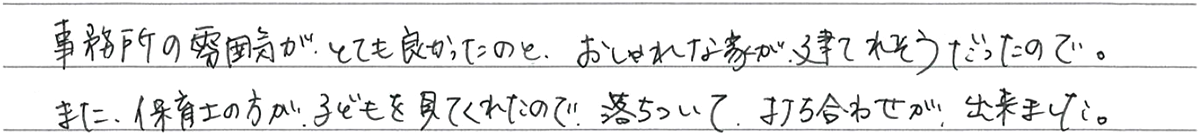 事務所の雰囲気が、とても良かったのと、おしゃれな家が、建てれそうだったので。
また、保育士の方が、子どもを見てくれたので、落ちついて、打ち合わせが、出来ました。